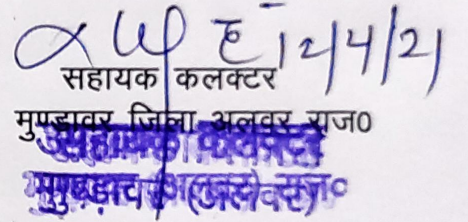 12/4/21
सहायक कलक्टर
मुण्डावर जिला अलवर राज0
सहायक कलक्टर
मुण्डावर (अलवर) राज०